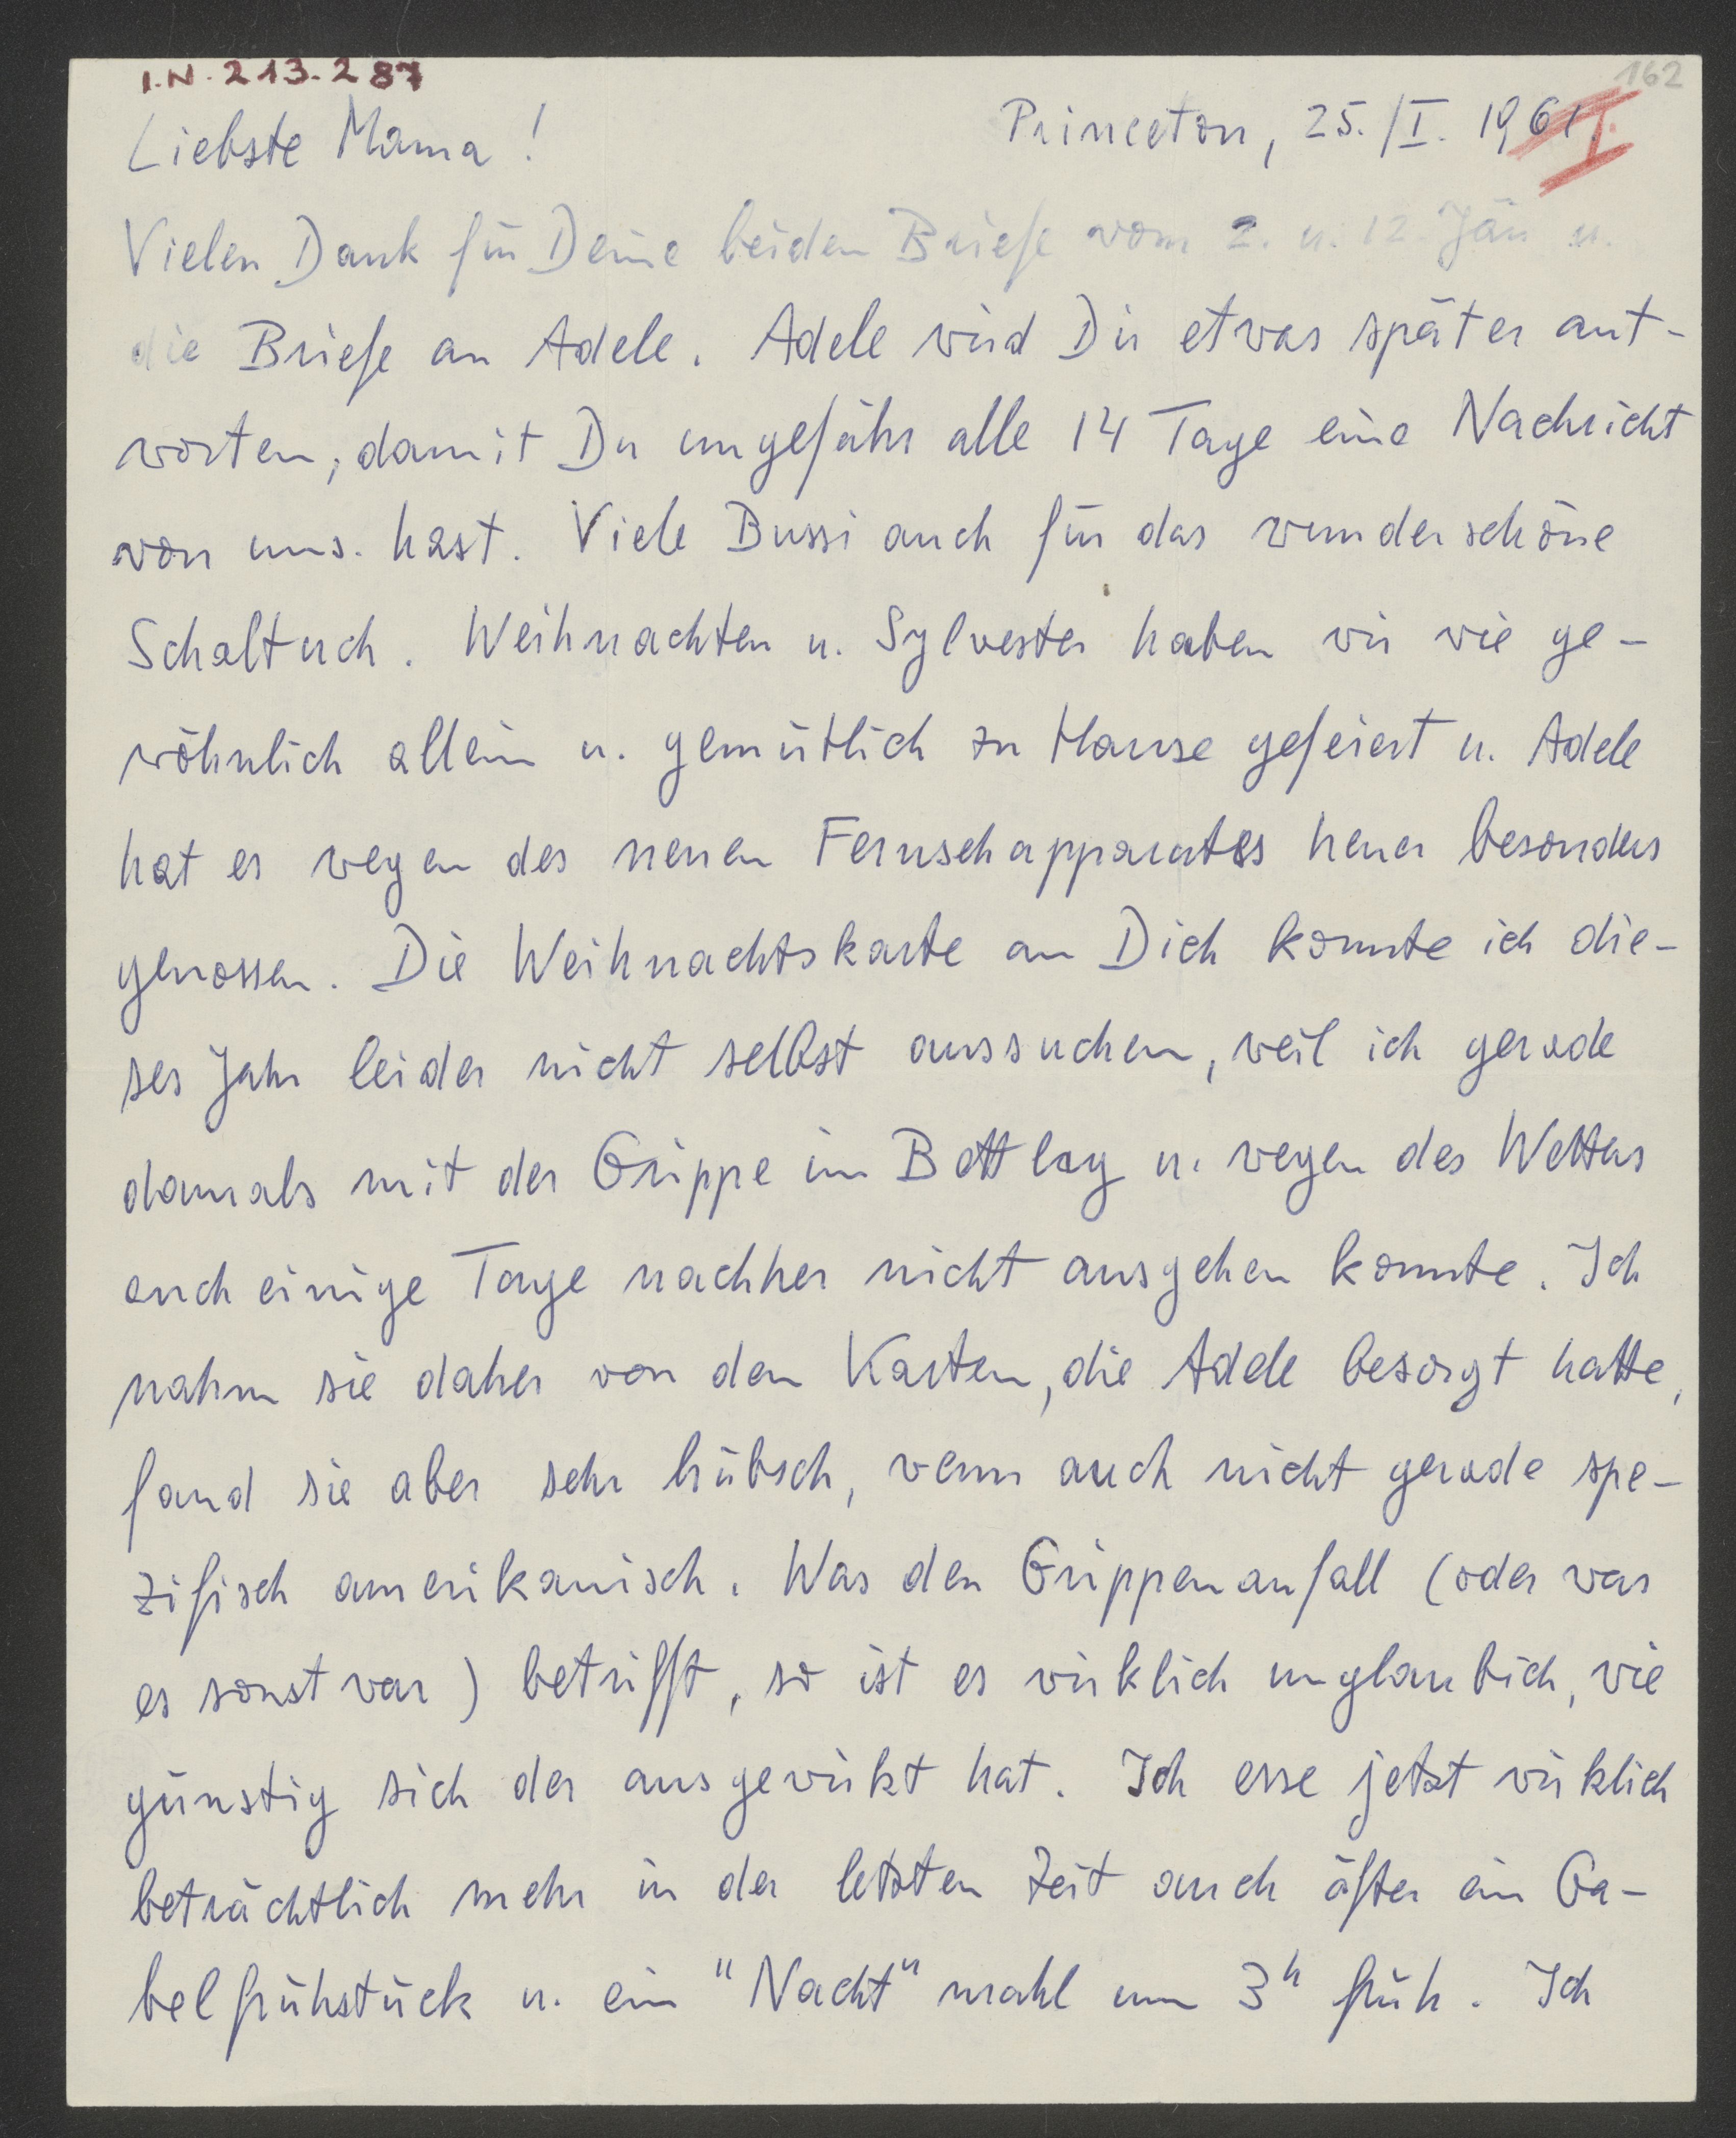 I.N. 213.287
162
Liebste Mama! Princeton, 25./I. 1961.
I.
Vielen Dank für Deine beiden Briefe vom 2. u. 12. Jän u.
die Briefe an Adele. Adele wird Dir etwas später ant-
worten, damit Du ungefähr alle 14 Tage eine Nachricht
von uns. hast. Viele Bussi auch für das wunderschöne
Schaltuch. Weihnachten u. Sylvester haben wir wie ge-
wöhnlich allein u. gemütlich zu Hause gefeiert u. Adele
hat es wegen des neuen Fernsehapparates heuer besonders
genossen. Die Weihnachtskarte an Dich konnte ich die-
ses Jahr leider nicht selbst aussuchen, weil ich gerade
damals mit der Grippe im Bett lag u. wegen des Wetters
auch einige Tage nachher nicht ausgehen konnte. Ich
nahm sie daher von den Karten, die Adele besorgt hatte,
fand sie aber sehr hübsch, wenn auch nicht gerade spe-
zifisch amerikanisch. Was den Grippenanfall (oder was
es sonst war) betrifft, so ist es wirklich unglaubich, wie
günstig sich der ausgewirkt hat. Ich esse jetzt wirklich
beträchtlich mehr in der letzten Zeit auch öfter ein Ga-
belfrühstück u. ein "Nacht"mahl um 3h früh. Ich